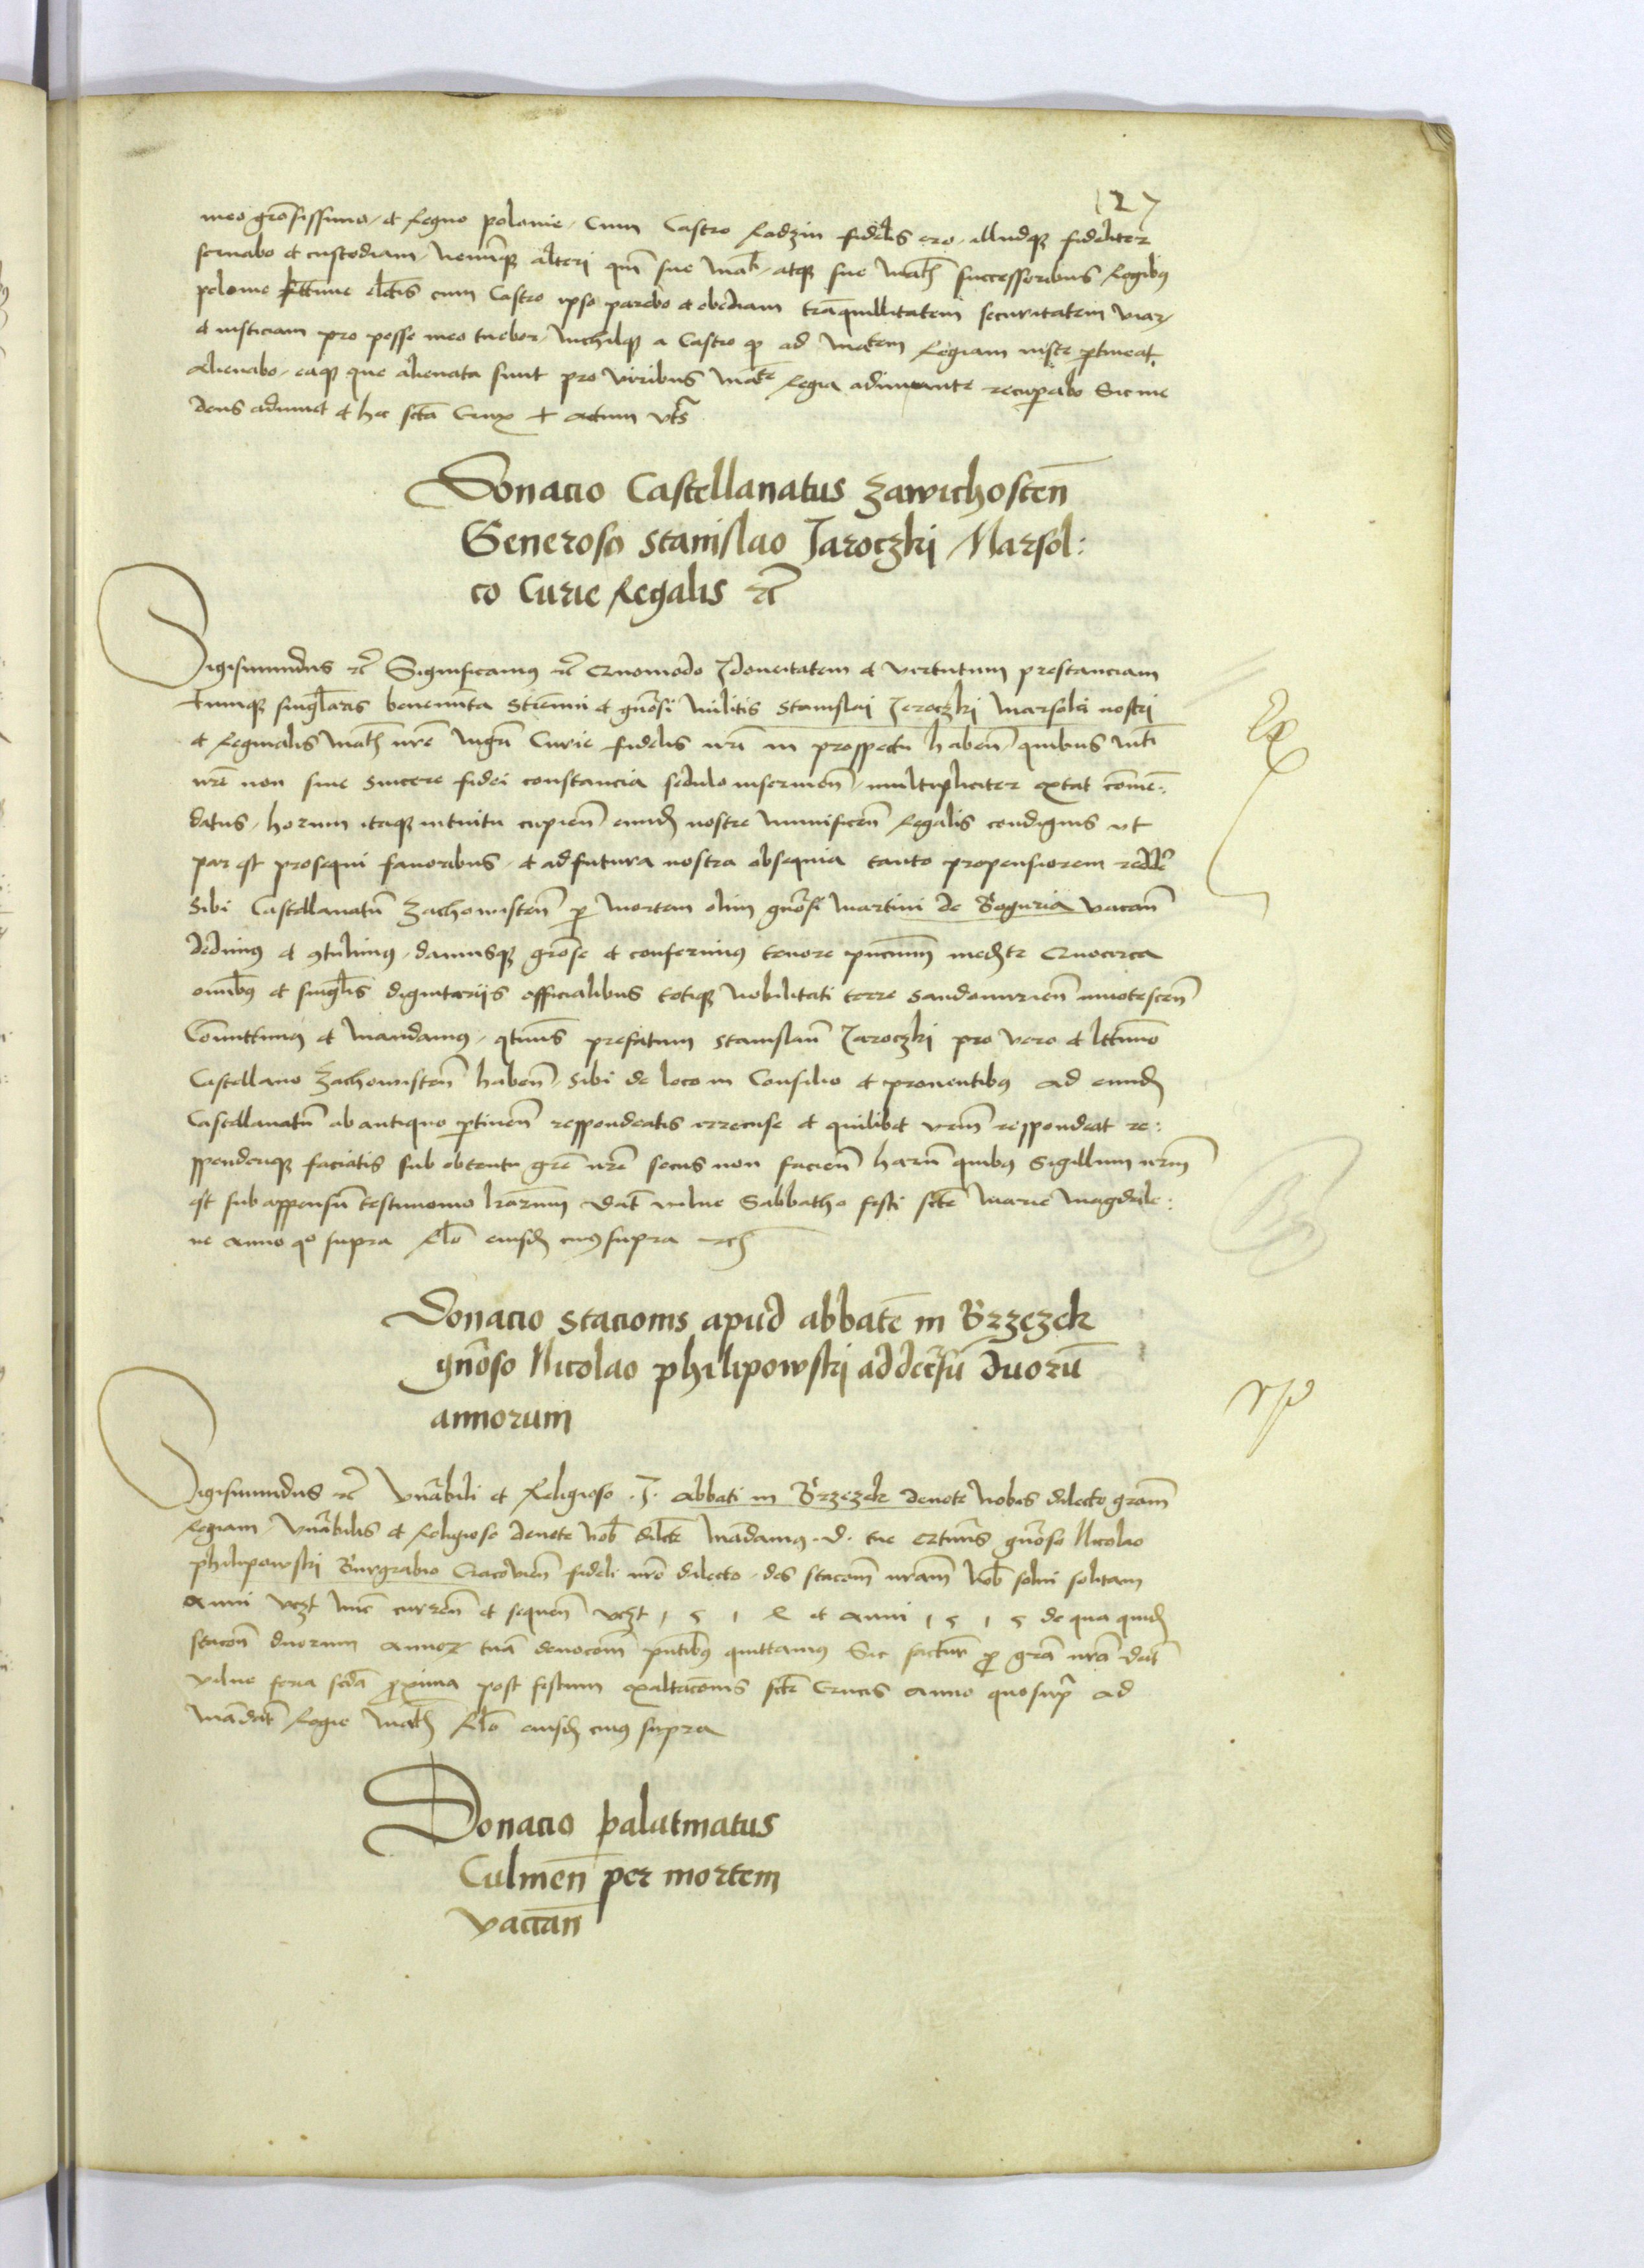 127
meo gro͞sissimo, et Regno polonie, Cum Castro Radzin fidelis ero, illudq3 fideliter
seruabo et custodiam, neminiq3 alteri qm̄ sue Mati, atq3 sue Matis successoribus Regibus
polonie lttime electis cum Castro ipso parebo et obediam tra͞quillitatem securitatem viar
et iusticiam pro posse meo tuebor, Nichilq3 a Castro q̄ ad Matem Regiam iuste ꝑtineat
alienabo, eaq3 que alienata sunt pro viribus Mate Regia adiuuante recuꝑabo Sic me
deus adiuuet et hec scta͞ Crux + actum vts͞
Donacio Castellanatus Zawichosten̄
Generoso Stanislao Jaroczki Marsol:
co Curie Regalis rc̄
Sigismundus rc̄ Significamus rc̄ Quomodo Idoneitatem et virtutum prestanciam
tumq3 singl̄aris benemı̄ta Strēnui et gn̄osi Militis Stanislai Jeroczki Marsalci nostri
et Reginalis Matis nr̄e Curie fidelis nr̄i in prospectu haben̄ quibus Mti
nr̄e non sine sincere fidei constancia sedulo inseruien̄, multipliciter extat com̄e:
datus, horum itaq3 intuitu cupien̄ eund̄ nostre munificen̄ Regalis condignis vt
par est prosequi fauoribus, et ad futura nostra obsequia tanto propensiorem redde͞
Sibi Castellanatū Zachowisten̄ ꝑ mortem olim gn̄osi Martini de Boguria vacan̄
dedimus et 9tulimus, damusq3 gro͞se et conferimus tenore pn̄cium med͞te Quocirca
omībus et singl̄is dignitarijs officialibus totiq3 Nobilitati terre Sandomirien̄ innotescen̄
Com̄ttimus et mandamus, qtin͞s prefatum Stanislaū Jaroczki pro vero et lttimo
Castellano Zachowisten̄ haben̄, sibi de loco in Consilio et prouentibus ad eund̄
Castellanatū ab antiquo ꝑtinen̄ respondeatis et quilibet vrm̄ respondeat re:
sponderiq3 faciatis sub obtentu gre͞ nr̄e secus non facien̄ harū quibus Sigillum nrm̄
est sub appensū testimonio lr̄arum Dat̄ vilne Sabbatho festi scte͞ Marie Magdale:
ne anno qo supra Rlo͞ eiusd̄ cuius supra
Donacio stacionis apud abbate͞ in Brzezek
gn̄oso Nicolao philipowski ad decursū duorū
annorum
Sigismundus rc̄ Vn̄abili et Religioso .J. abbati in Brzezek deuote Nobis dilecto gram̄
Regiam, Vn̄abilis et Religiose deuote Nob̄ dilecte Ma͞damus .d. tue gn̄oso Nicolao
philipowski Burgrabio Cracouien̄ fideli nr̄o dilecto, des stacom̄ nram̄ Nob̄ solui solitam
Anni vczt nūc curren̄ et sequen̄ vczt 1 5 1 4 et anni 1 5 1 5 de qua quid̄
stacon̄ duorum annor tua͞ deuocom̄ pn̄tibus quittamus Sic facturus ꝓ gra͞ nra͞ Dat̄
vilne feria scda͞ proxima post festum exaltacōnis scte͞ Crucis anno quo supra ad
Ma͞dat̄ Regie Matis Rlo͞ eiusd̄ cuius supra
Donacio palatinatus
Culmen̄ per mortem
vacan̄